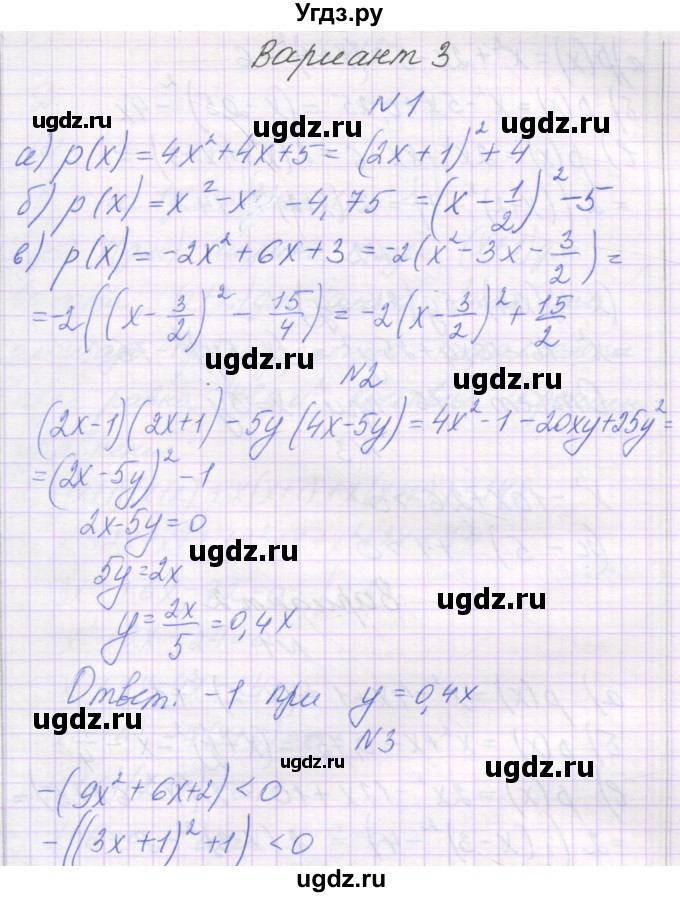 Угдз.ру
Вариант 3
№1
ugdz.ru ugdz.ru
а) p(x) = 4x² + 4x + 5 = (2x + 1)² + 4
б) p(x) = x² - x - 4,75 = (x - 1/2)² - 5
ugdz.ru ugdz.ru
в) p(x) = -2x² + 6x + 3 = -2(x² - 3x - 3/2) =
= -2((x - 3/2)² - 15/4) = -2(x - 3/2)² + 15/2
ugdz.ru ugdz.ru
№2
(2x-1)(2x+1) - 5y(4x-5y) = 4x² - 1 - 20xy + 25y² =
= (2x - 5y)² - 1
2x - 5y = 0
ugdz.ru
5y = 2x
ugdz.ru
y = 2x/5 = 0,4x
Ответ: -1 при y = 0,4x
ugdz.ru
№3
ugdz.ru ugdz.ru
-(9x² + 6x + 2) < 0
-((3x + 1)² + 1) < 0
ugdz.ru